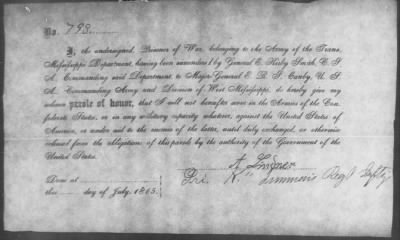 No. 793
I, the undersigned, Prisoner of War, belonging to the Army of the Trans,
Mississippi Department, having been surrendered by General E. Kirby Smith, C. S.
A., Commanding said Department, to Major-General E. R. S. Canby, U. S.
A., Commanding Army and Division of West Mississippi, do hereby give my
solemn parole of honor, that I will not hereafter serve in the Armies of the Con-
federate States, or in any military capacity whatever, against the United States of
America, or render aid to the enemies of the latter, until duly exchanged, or otherwise
released from the obligations of this parole by the authority of the Government of the
United States.
A. Lindner
Pri. K. Timmons Regt Infty
Done at
this day of July 1865.